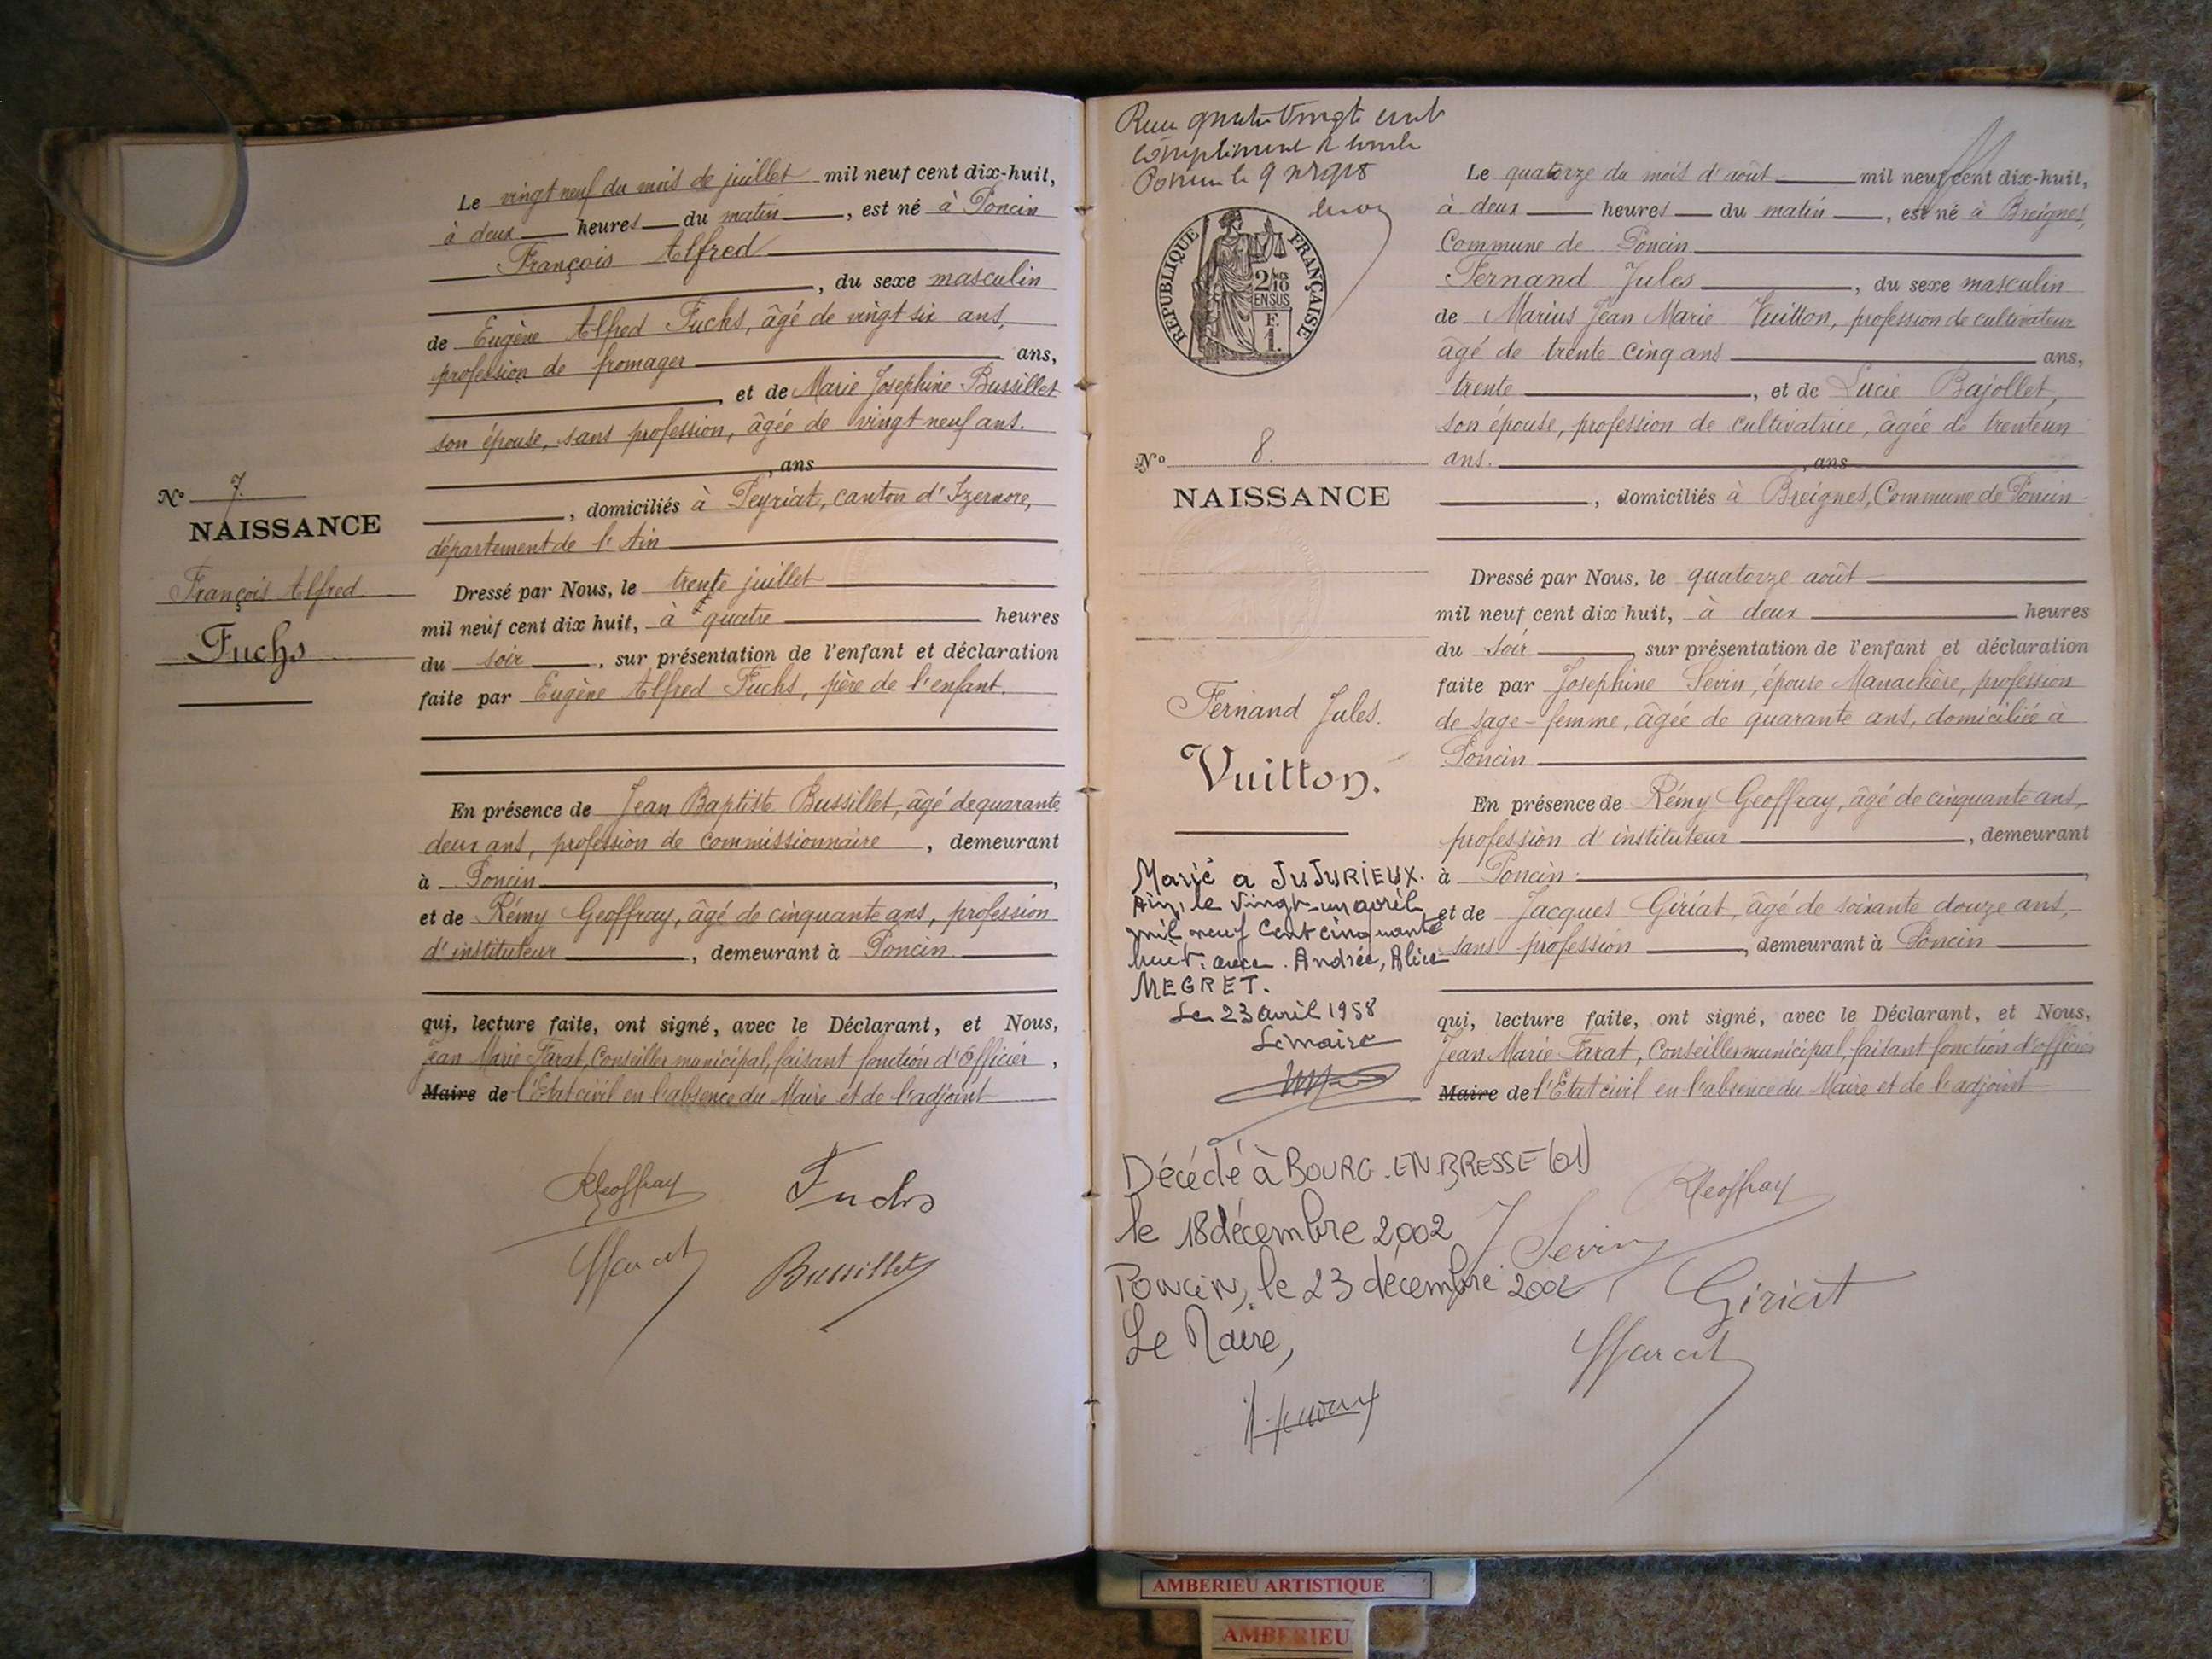 Le vingt neuf du mois de juillet mil neuf cent dix-huit,
à deux heures du matin, est né à Poncin
François Alfred
, du sexe masculin
de Eugène Alfred Fuchs, âgé de vingt six ans,
profession de fromager ans,
, et de Marie Josephine Bussillet
son épouse, sans profession, âgée de vingt neuf ans.
, ans
, domiciliés à Peyriat, canton d'Izernore,
département de l'Ain
Nº 7.
NAISSANCE
François Alfred
Fuchs
Dressé par Nous, le trente juillet
mil neuf cent dix huit, à quatre heures
du soir, sur présentation de l'enfant et déclaration
faite par Eugène Alfred Fuchs, père de l'enfant.
En présence de Jean Baptiste Bussillet, âgé de quarante
deux ans, profession de commissionnaire, demeurant
à Poncin,
et de Rémy Geoffray, âgé de cinquante ans, profession
d'instituteur, demeurant à Poncin
qui, lecture faite, ont signé, avec le Déclarant, et Nous,
Jean Marie Farat, Conseiller municipal, faisant fonction d'Officier,
Maire de l'Etat civil en l'absence du Maire et de l'adjoint
RGeoffray Fuchs
Farat Bussillet
quatre Vingt
Poncin le 9
REPUBLIQUE FRANÇAISE
2/10
EN SUS
F.
1.
Nº 8.
NAISSANCE
Fernand Jules.
Vuitton.
Marié a JUJURIEUX.
Ain, le Vingt-un avril
mil neuf Cent cinquante
huit, avec Andrée, Alice
MEGRET.
Le 23 avril 1958
Le maire
Décédé à BOURG-EN-BRESSE (01)
le 18 décembre 2002
PONCIN, le 23 décembre 2002
Le Maire,
Le quatorze du mois d'août mil neuf cent dix-huit,
à deux heures du matin, est né à Breignes,
Commune de Poncin
Fernand Jules, du sexe masculin
de Marius Jean Marie Vuitton, profession de cultivateur
âgé de trente cinq ans ans,
trente, et de Lucie Bajollet,
son épouse, profession de cultivatrice, âgée de trente un
ans. , ans
, domiciliés à Breignes, Commune de Poncin
Dressé par Nous, le quatorze août
mil neuf cent dix huit, à deux heures
du soir, sur présentation de l'enfant et déclaration
faite par Josephine Sevin, épouse Manachère, profession
de sage-femme, âgée de quarante ans, domiciliée à
Poncin
En présence de Rémy Geoffray, âgé de cinquante ans,
profession d'instituteur, demeurant
à Poncin,
et de Jacques Giriat, âgé de soixante douze ans,
sans profession, demeurant à Poncin
qui, lecture faite, ont signé, avec le Déclarant, et Nous,
Jean Marie Farat, Conseiller municipal, faisant fonction d'officier
Maire de l'Etat civil en l'absence du Maire et de l'adjoint
RGeoffray
J Sevin
Giriat
Farat
AMBERIEU ARTISTIQUE
AMBERIEU